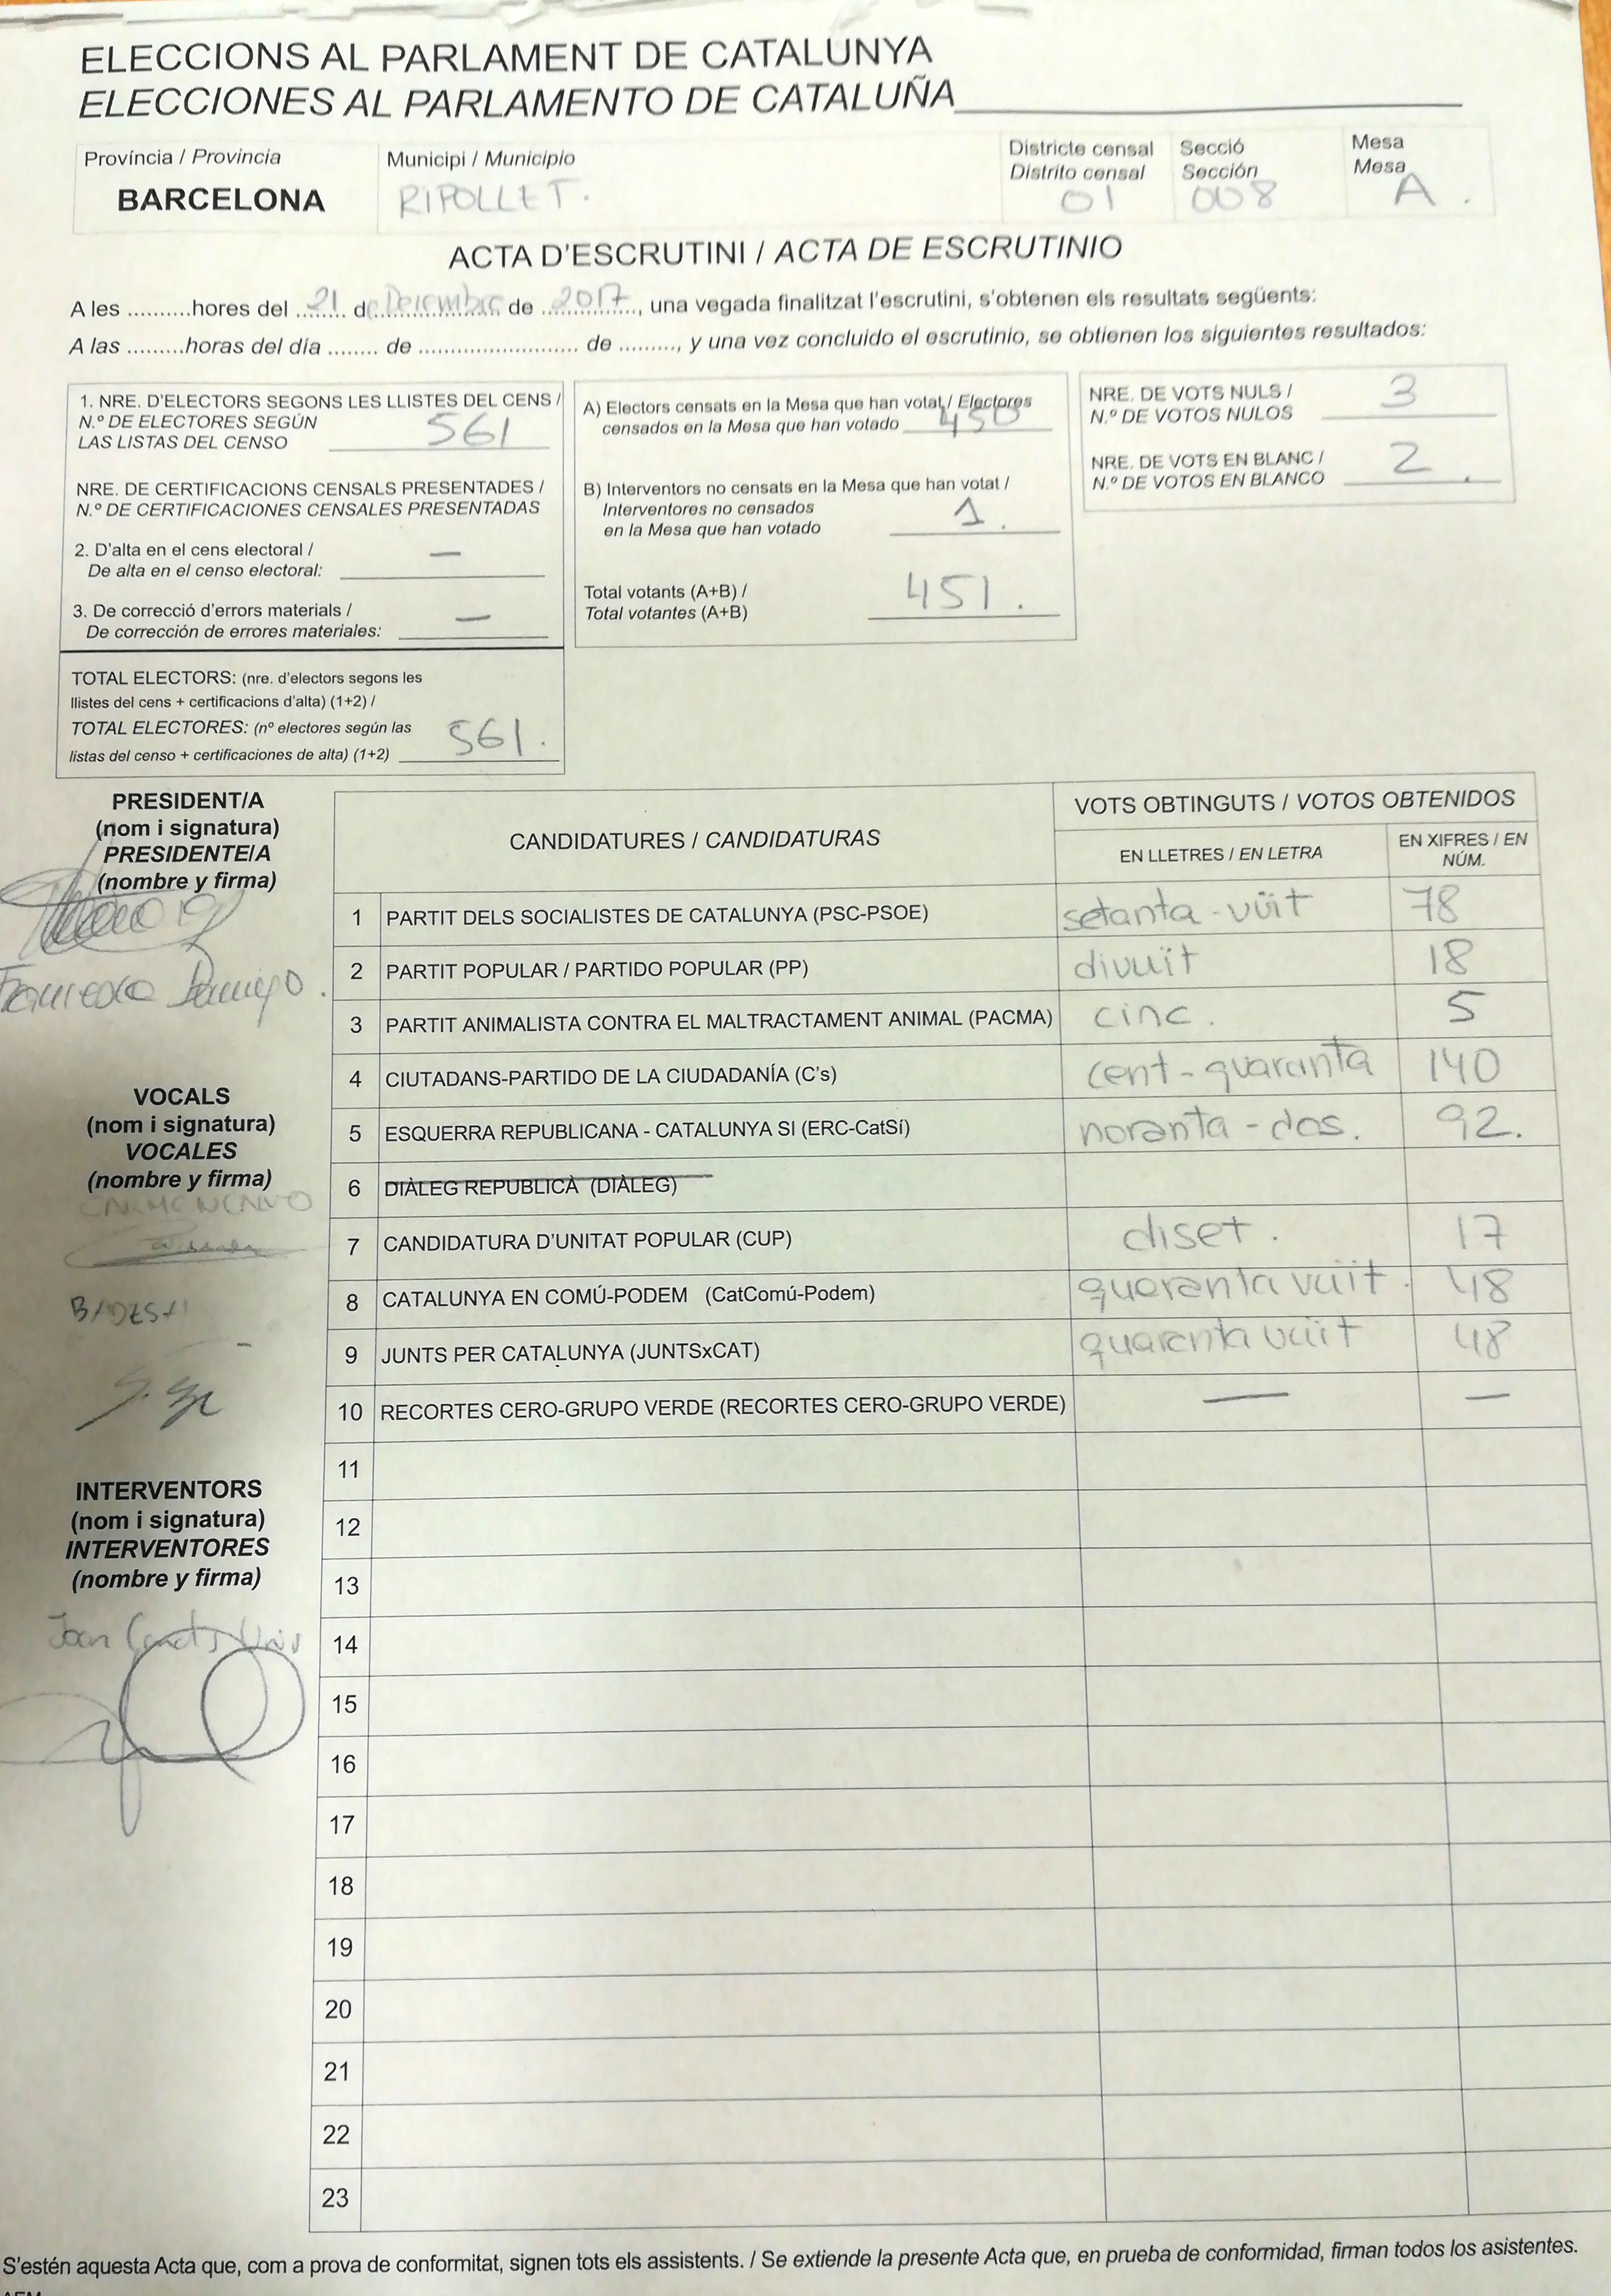 ELECCIONS AL PARLAMENT DE CATALUNYA
ELECCIONES AL PARLAMENTO DE CATALUÑA
Província / Provincia
BARCELONA
Municipi / Municipio
RIPOLLET.
Districte censal
Distrito censal
01
Secció
Sección
008
Mesa
Mesa
A.
ACTA D'ESCRUTINI / ACTA DE ESCRUTINIO
A les ..........hores del 21 de Desembre de 2017, una vegada finalitzat l'escrutini, s'obtenen els resultats següents:
A las .........horas del día ........ de .......................... de ........., y una vez concluido el escrutinio, se obtienen los siguientes resultados:
1. NRE. D'ELECTORS SEGONS LES LLISTES DEL CENS /
N.º DE ELECTORES SEGÚN
LAS LISTAS DEL CENSO 561
NRE. DE CERTIFICACIONS CENSALS PRESENTADES /
N.º DE CERTIFICACIONES CENSALES PRESENTADAS
2. D'alta en el cens electoral /
De alta en el censo electoral: —
3. De correcció d'errors materials /
De corrección de errores materiales: —
TOTAL ELECTORS: (nre. d'electors segons les
llistes del cens + certificacions d'alta) (1+2) /
TOTAL ELECTORES: (nº electores según las
listas del censo + certificaciones de alta) (1+2) 561.
A) Electors censats en la Mesa que han votat / Electores
censados en la Mesa que han votado 450
B) Interventors no censats en la Mesa que han votat /
Interventores no censados
en la Mesa que han votado 1.
Total votants (A+B) /
Total votantes (A+B) 451.
NRE. DE VOTS NULS /
N.º DE VOTOS NULOS 3
NRE. DE VOTS EN BLANC /
N.º DE VOTOS EN BLANCO 2.
PRESIDENT/A
(nom i signatura)
PRESIDENTE/A
(nombre y firma)
VOCALS
(nom i signatura)
VOCALES
(nombre y firma)
INTERVENTORS
(nom i signatura)
INTERVENTORES
(nombre y firma)
Joan
CANDIDATURES / CANDIDATURAS
VOTS OBTINGUTS / VOTOS OBTENIDOS
EN LLETRES / EN LETRA
EN XIFRES / EN
NÚM.
1 PARTIT DELS SOCIALISTES DE CATALUNYA (PSC-PSOE) setanta-vüit 78
2 PARTIT POPULAR / PARTIDO POPULAR (PP) divuït 18
3 PARTIT ANIMALISTA CONTRA EL MALTRACTAMENT ANIMAL (PACMA) cinc. 5
4 CIUTADANS-PARTIDO DE LA CIUDADANÍA (C's) cent-quaranta 140
5 ESQUERRA REPUBLICANA - CATALUNYA SI (ERC-CatSí) noranta-dos. 92.
6 DIÀLEG REPUBLICÀ (DIÀLEG)
7 CANDIDATURA D'UNITAT POPULAR (CUP) diset. 17
8 CATALUNYA EN COMÚ-PODEM (CatComú-Podem) quaranta vuït. 48
9 JUNTS PER CATALUNYA (JUNTSxCAT) quaranta vuït 48
10 RECORTES CERO-GRUPO VERDE (RECORTES CERO-GRUPO VERDE) — —
11
12
13
14
15
16
17
18
19
20
21
22
23
S'estén aquesta Acta que, com a prova de conformitat, signen tots els assistents. / Se extiende la presente Acta que, en prueba de conformidad, firman todos los asistentes.